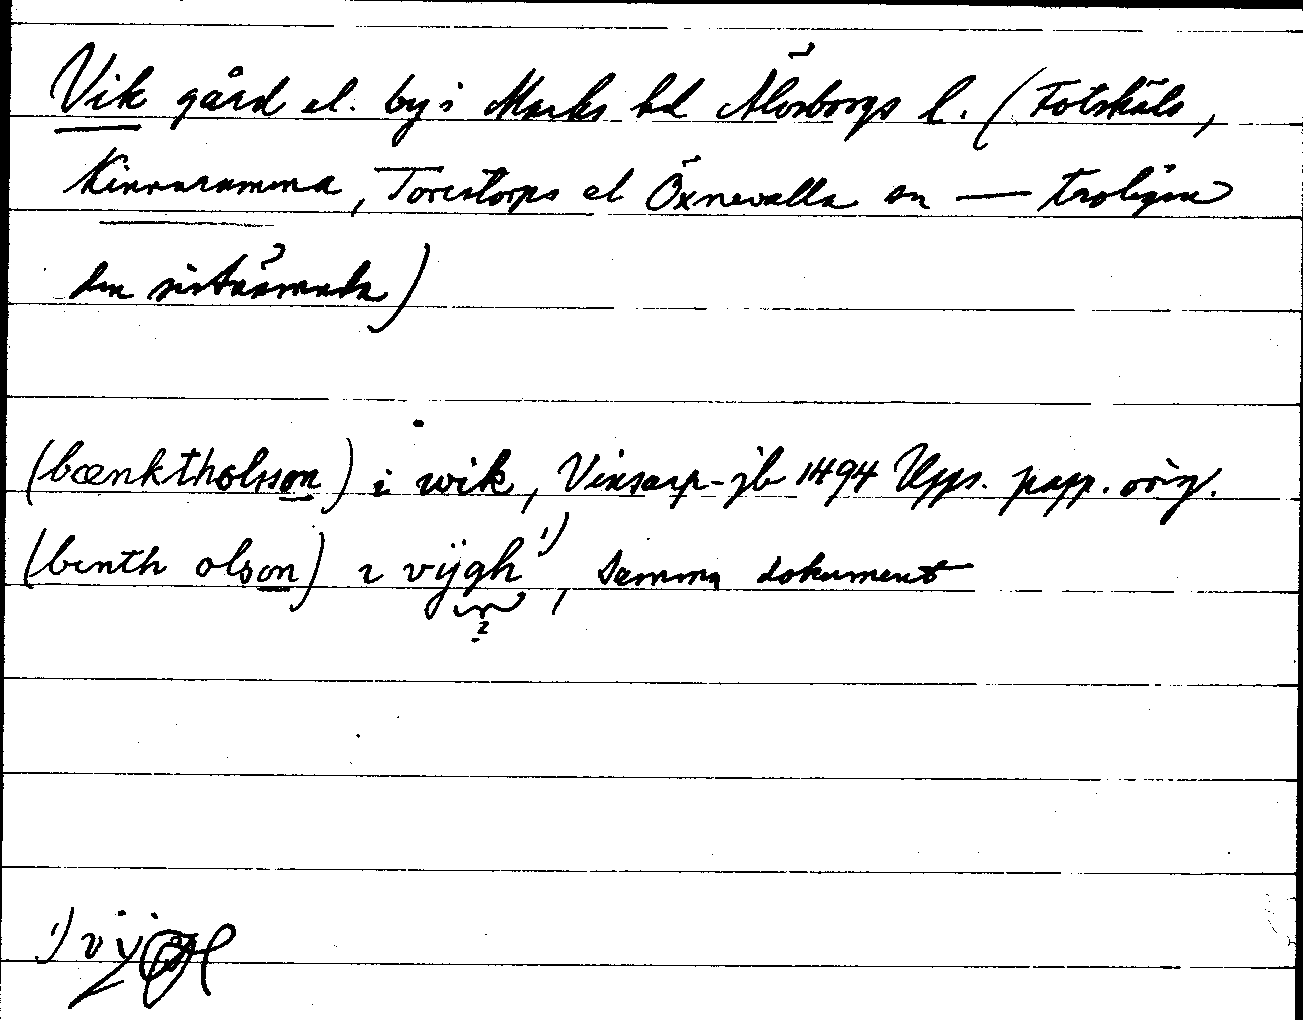 Vik gård el. by i Marks hd Älvsborgs l. (Fotskäls,
Kinnarumma, Torestorps el Öxnevalla sn — troligen
den sistnämnda)
(bænktholsson) i wik, Vinsarp-jb 1494 Upps. papp. orig.
(benth olson) ı vÿgh 1), samma dokument
?
1) vÿgh